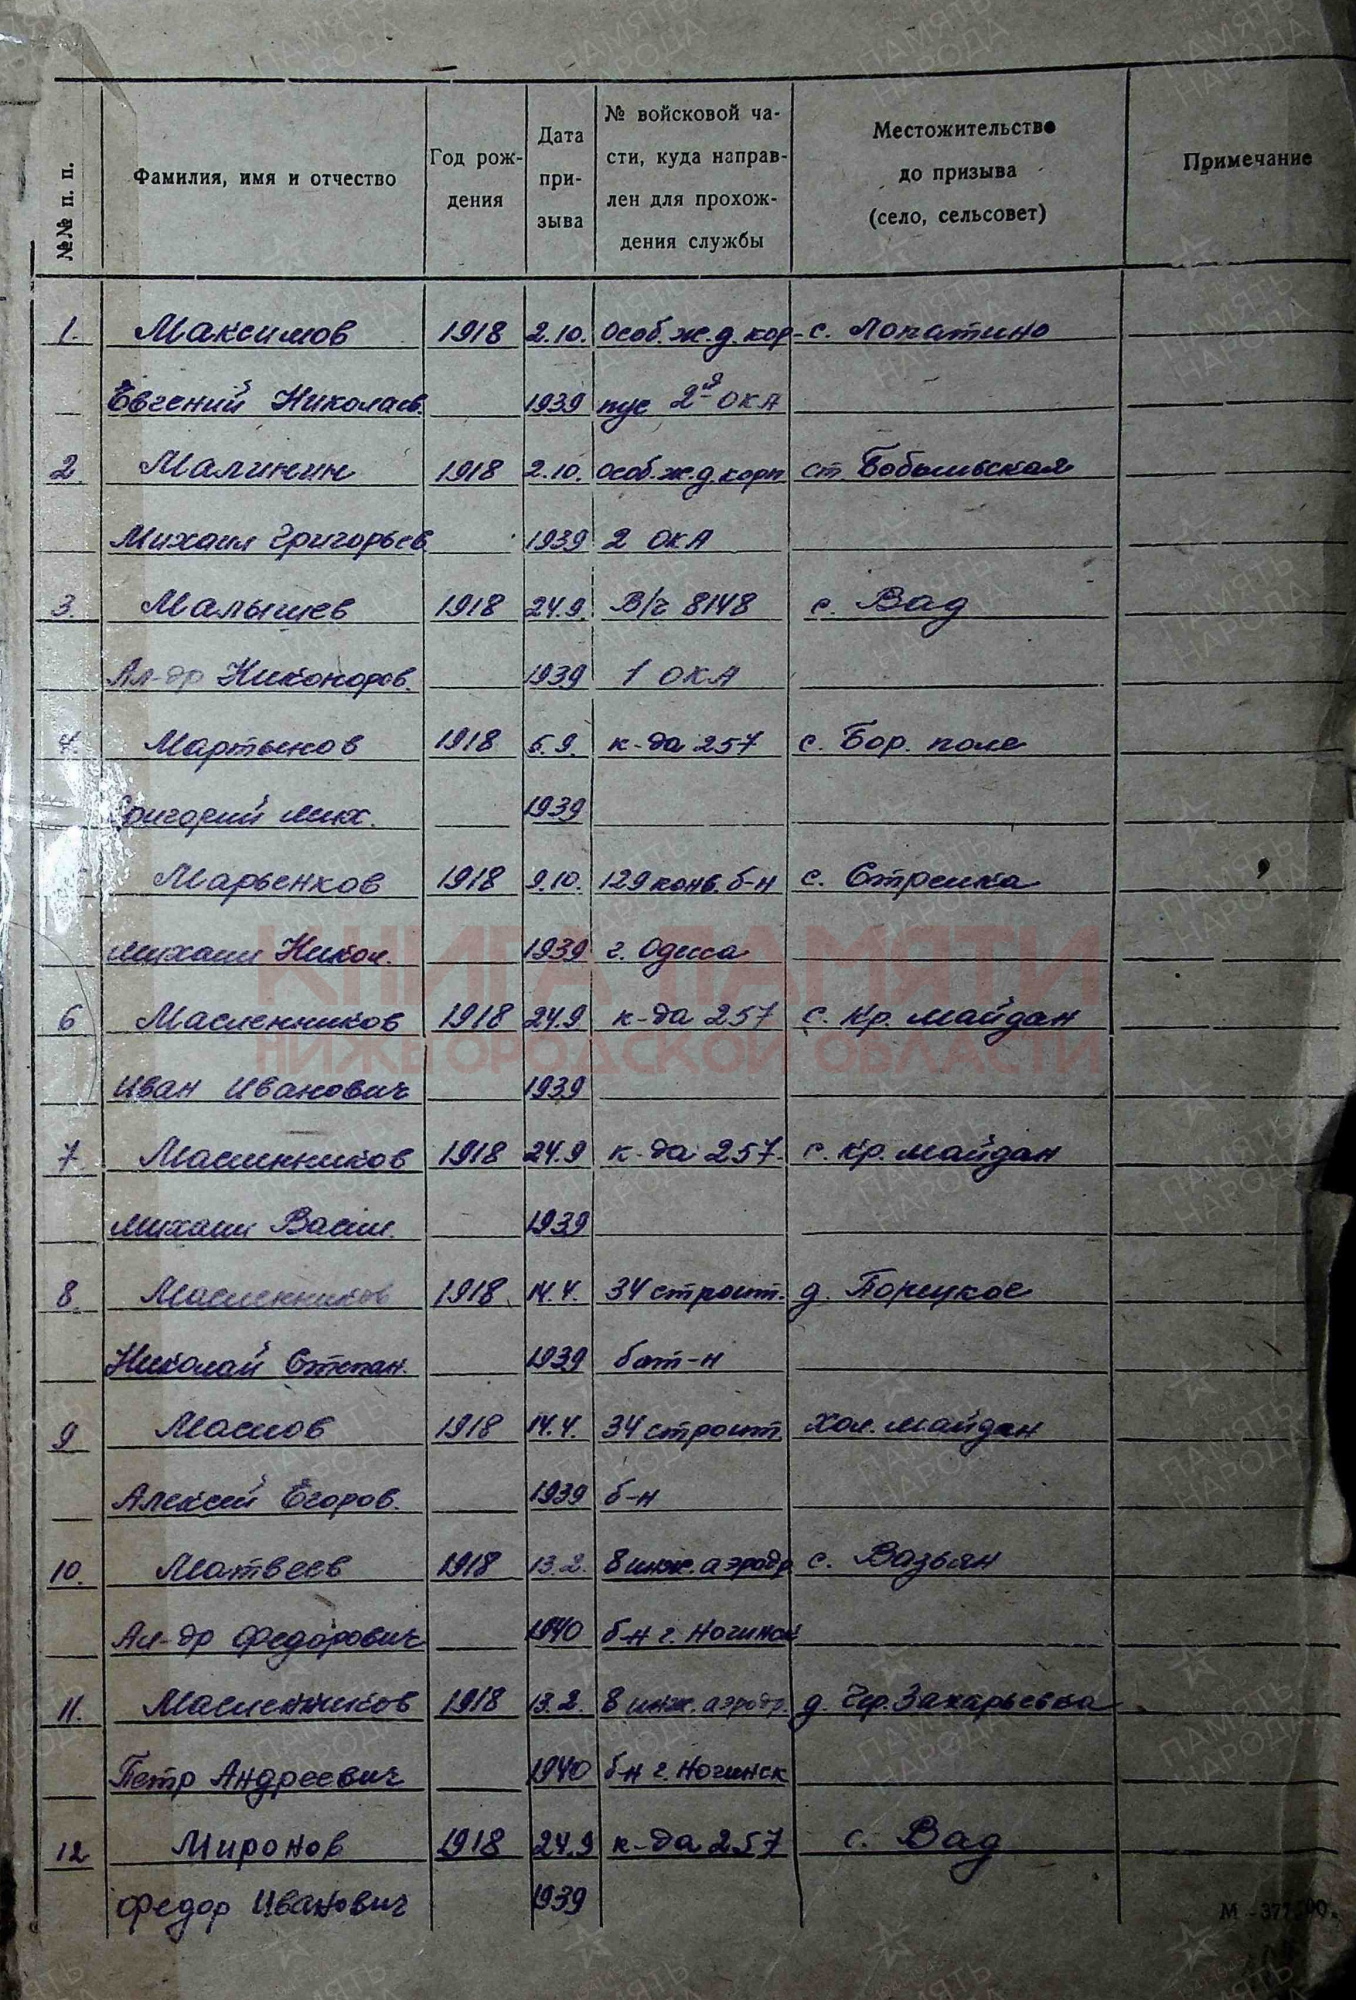 №№ п. п.
Фамилия, имя и отчество
Год рож-
дения
Дата
при-
зыва
№ войсковой ча-
сти, куда направ-
лен для прохож-
дения службы
Местожительство
до призыва
(село, сельсовет)
Примечание
1. Максимов 1918 2.10. Особ. ж. д. кор- с. Лопатино
Евгений Николаев. 1939 пус 2й ОКА
2 Малинин 1918 2.10. особ. ж. д. корп ст. Бобыльская
Михаил Григорьев 1939 2 ОКА
3. Малышев 1918 24.9. В/ч 8148 с. Вад
Ал-др Никоноров. 1939 1 ОКА
4. Мартынов 1918 5.9. к-да 257 с. Бор. поле
Григорий Мих. 1939
Марьенков 1918 9.10. 129 конв. б-н с. Стрелка
Михаил Никол. 1939 г. Одесса
6 Масленников 1918 24.9 к-да 257 с. Кр. майдан
Иван Иванович 1939
7 Масленников 1918 24.9 к-да 257. с. Кр. майдан
Михаил Васил. 1939
8. Масленников 1918 14.4. 34 строит. д. Порецкое
Николай Степан. 1939 бат-н
9 Маслов 1918 14.4. 34 строит. Хол. майдан
Алексей Егоров. 1939 б-н
10. Матвеев 1918 13.2. 8 инж. аэродр с. Вазьян
Ал-др Федорович 1940 б-н г. Ногинск
11. Масленников 1918 13.2. 8 инж. аэродр. д. Захарьевка
Петр Андреевич 1940 б-н г. Ногинск
12 Миронов 1918 24.9 к-да 257 с. Вад
Федор Иванович 1939
КНИГА ПАМЯТИ
НИЖЕГОРОДСКОЙ ОБЛАСТИ
ПАМЯТЬ
НАРОДА